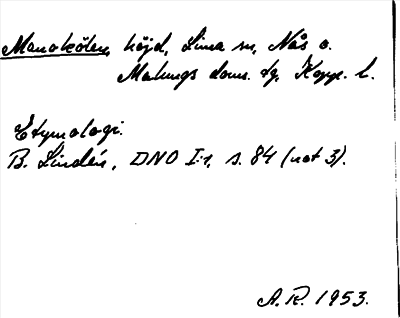 Manakölen, höjd, Lima sn, Nås o.
Malungs doms. tg, Kopp. l.
Etymologi.
B. Lindén, DNO I:1, s. 84 (not 3).
A.R. 1953.